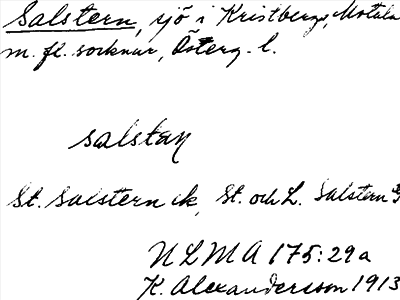 Salstern, sjö i Kristbergs, Motala
m. fl. socknar, Österg. l.
salstaɳ
St. Salstern ek, St. och L. Salstern
NLMA 175:29a
K. Alexandersson 1913